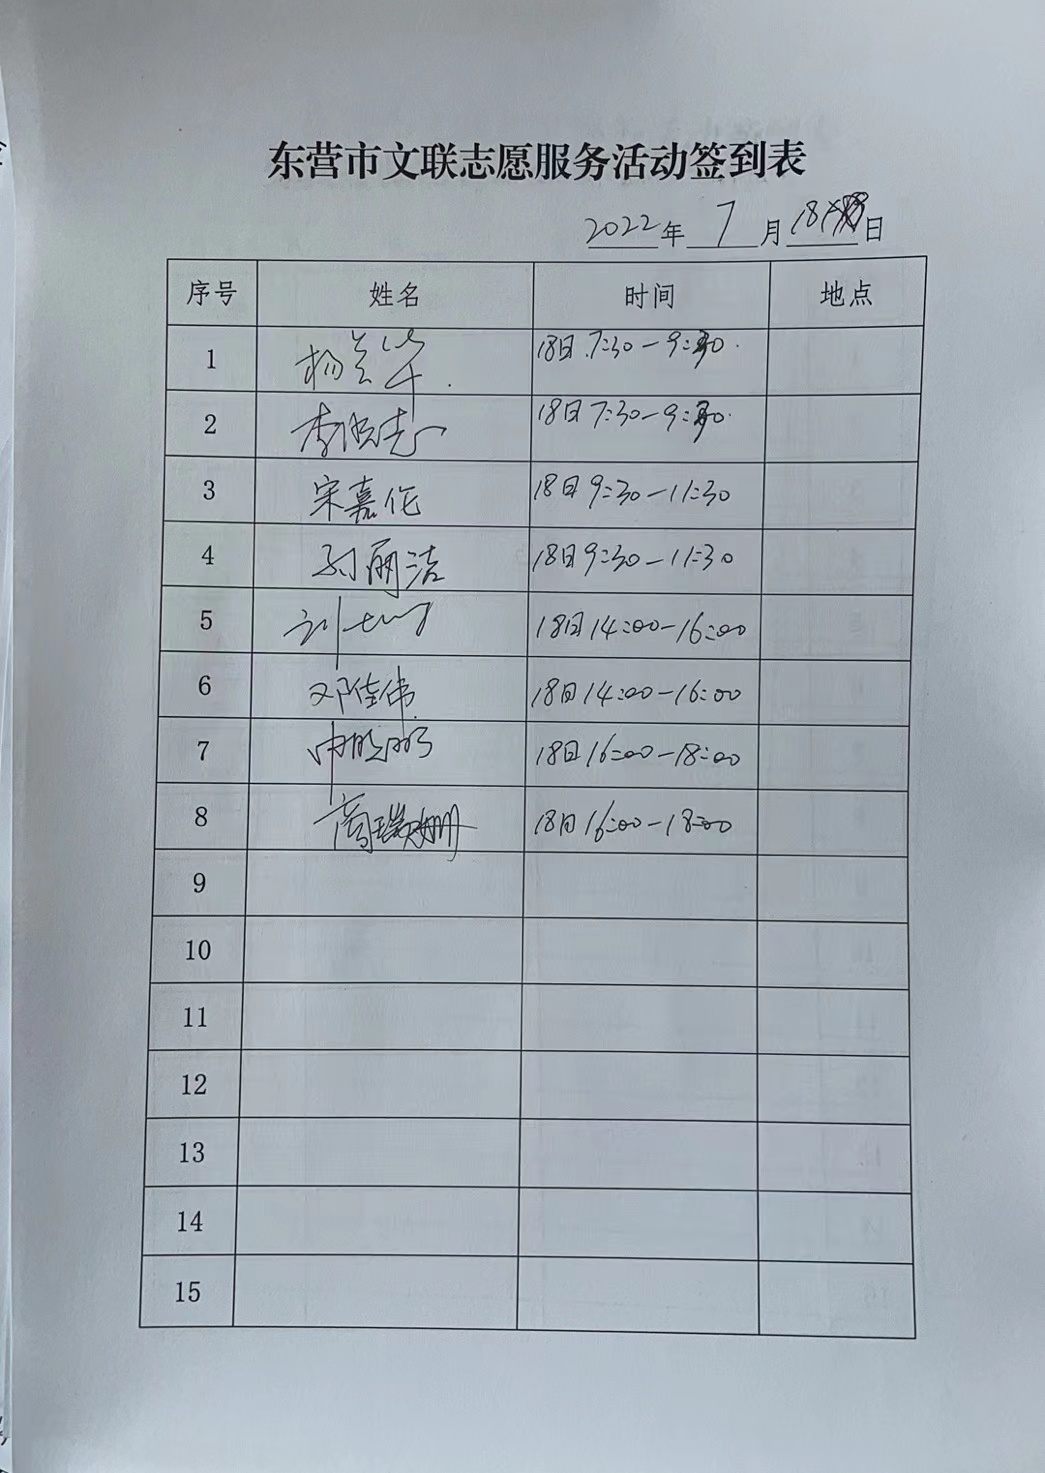 东营市文联志愿服务活动签到表
2022年 7 月 18 日
序号 姓名 时间 地点
1 杨兰华 18日 7:30-9:30
2 李悦志 18日 7:30-9:30
3 宋嘉伦 18日 9:30-11:30
4 孙丽洁 18日 9:30-11:30
5 18日 14:00-16:00
6 邓佳伟 18日 14:00-16:00
7 18日 16:00-18:00
8 18日 16:00-18:00
9
10
11
12
13
14
15